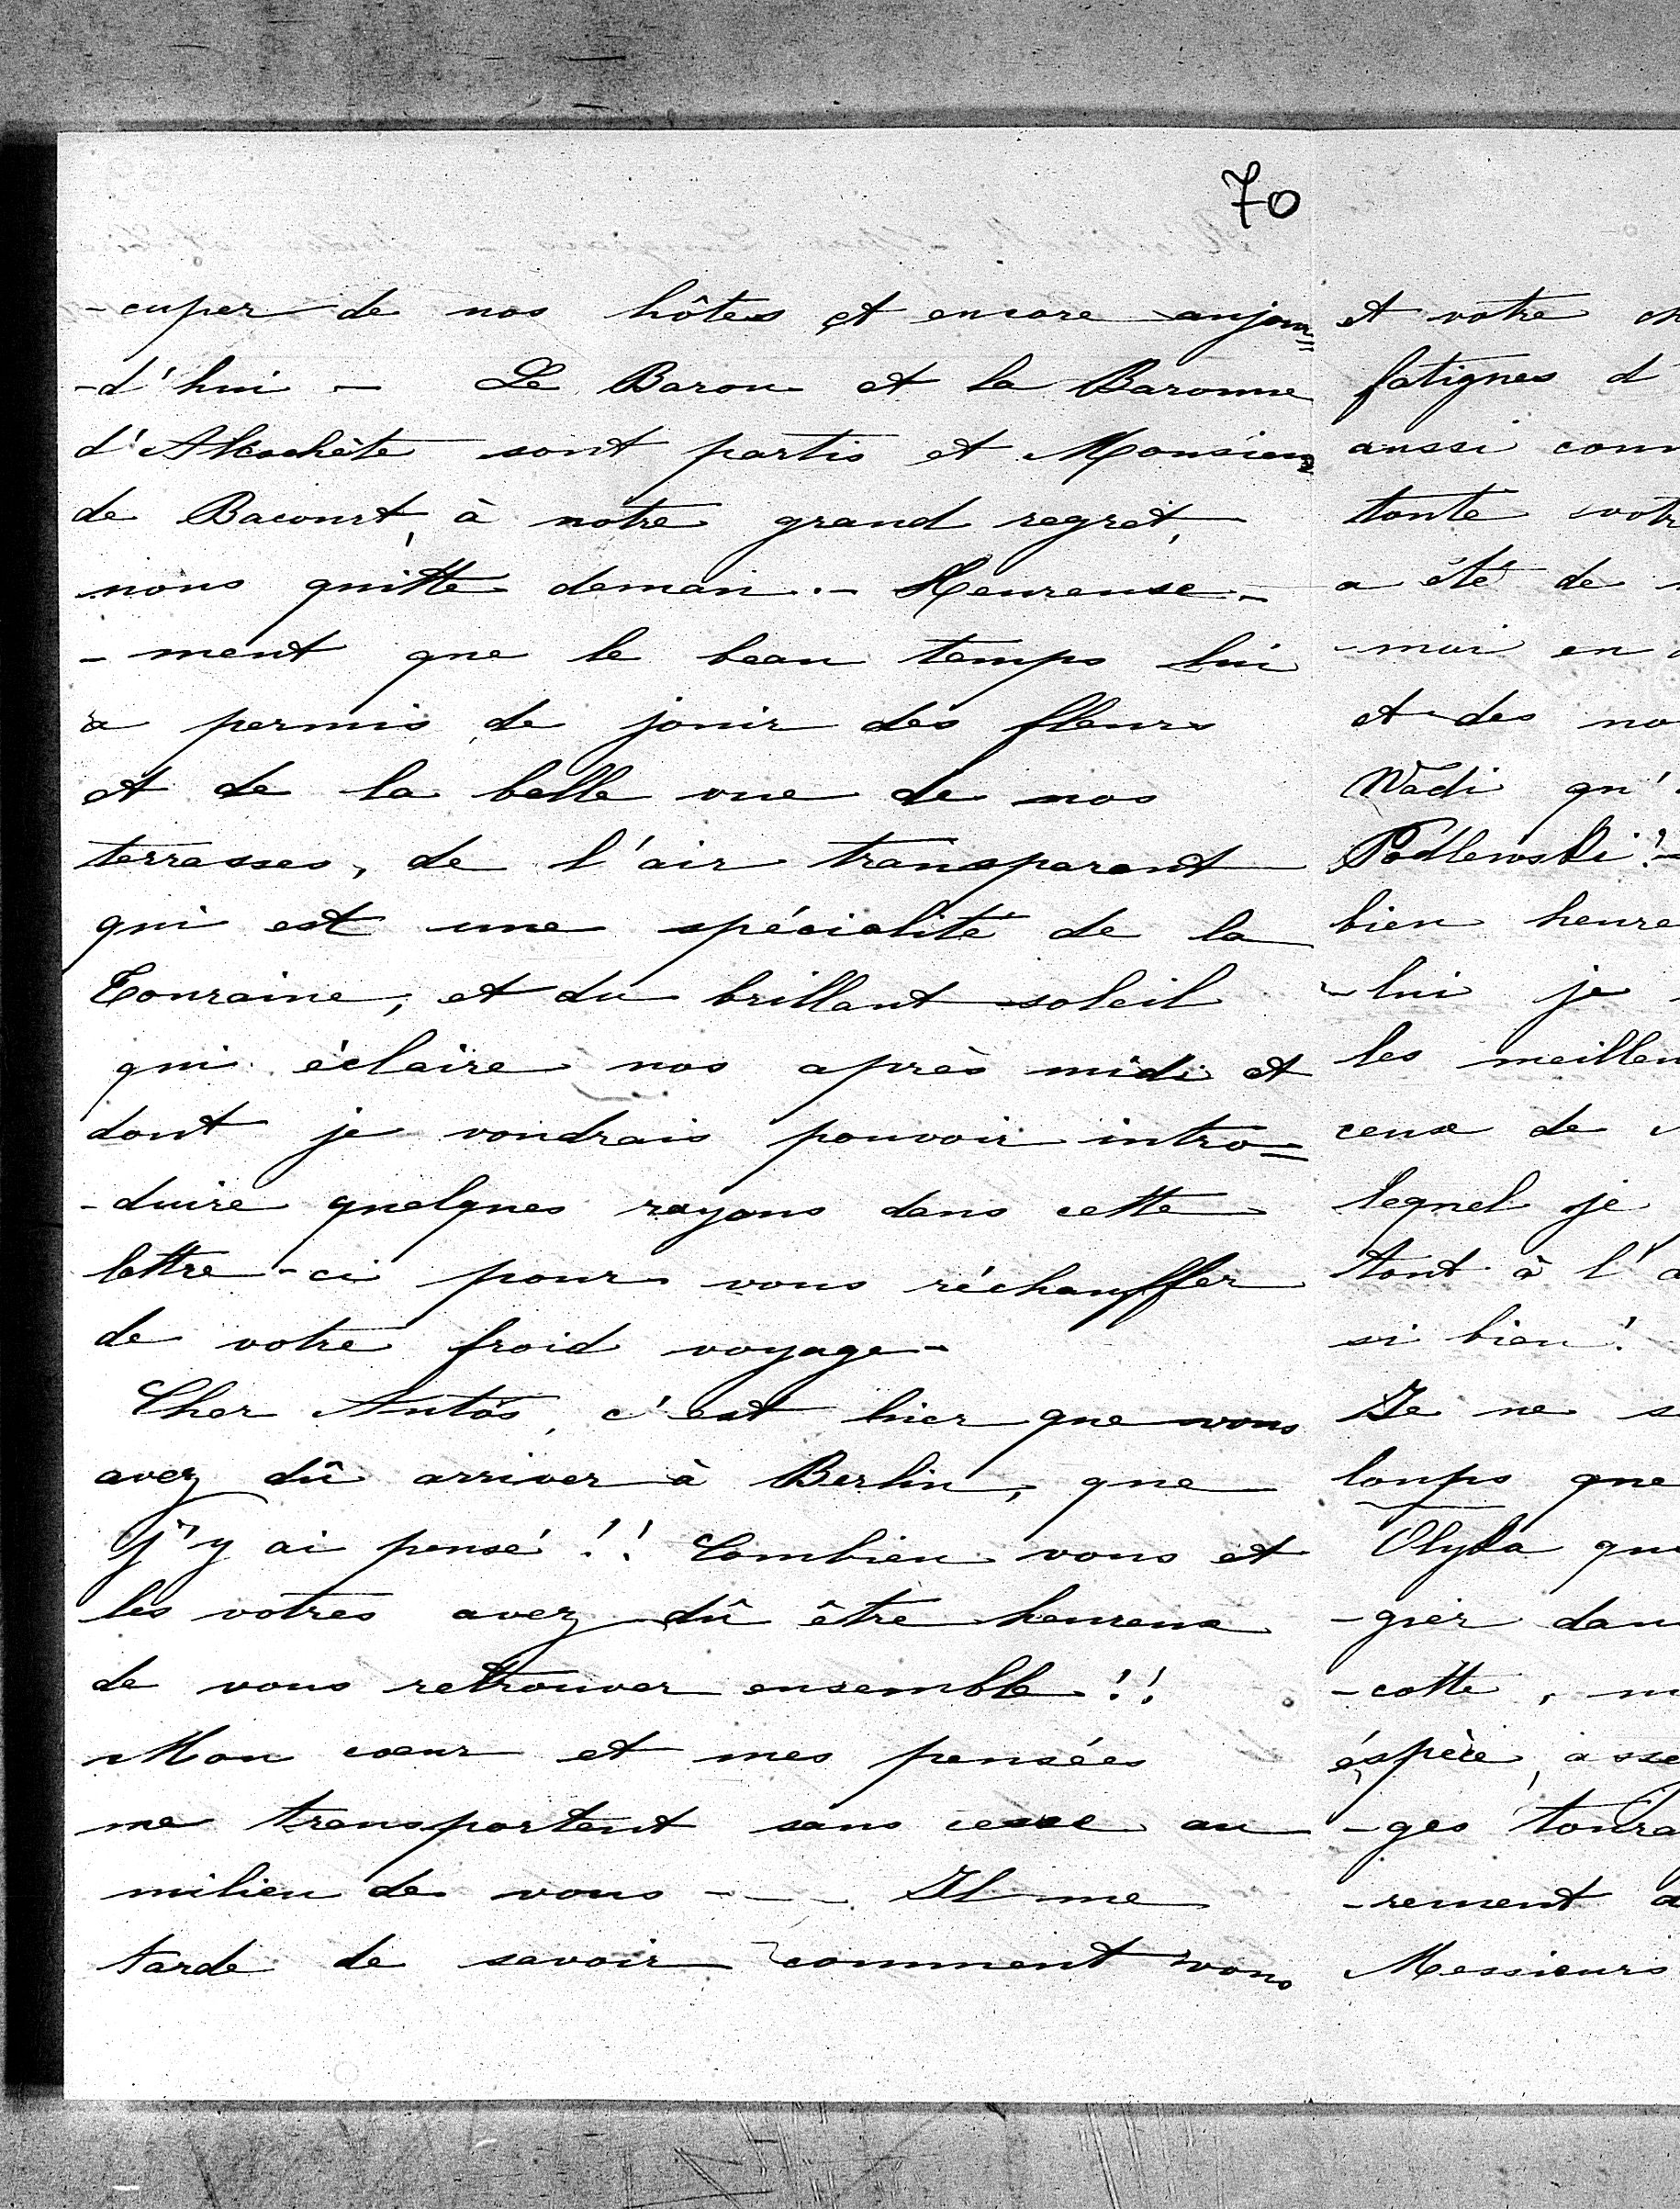 70
-cuper de nos hôtes et encore aujour=
-d'hui - Le Baron et la Baronne
d'Alcochète sont partis et Monsieur
de Bacourt, à notre grand regret,
nous quitte demain. - Heureuse-
-ment que le beau temps lui
a permis de jouir des fleurs
et de la belle vue de nos
terrasses, de l'air transparent
qui est une spécialité de la
Touraine, et du brillant soleil
qui éclaire nos après midi et
dont je voudrais pouvoir intro=
-duire quelques rayons dans cette
lettre-ci pour vous réchauffer
de votre froid voyage -
Cher Antoś, c'est hier que vous
avez dû arriver à Berlin, que
j'y ai pensé !! Combien vous et
les votres avez dû être heureux
de vous retrouver ensemble !!
Mon coeur et mes pensées
me transportent sans cesse au
milieu de vous - - - Il me
tarde de savoir comment vous
et votre ch
fatigues d'
aussi com
toute votr
a été de
moi en
et des no
Wadi qu'
Podlewski! -
bien heure
-lui je
les meilleu
ceux de
lequel je
tout à l'a
si bien!
Je ne s
loups que
Olyka que
-gier dan
-cotte, m
éspère, asse
-ges toura
-rement a
Messieurs